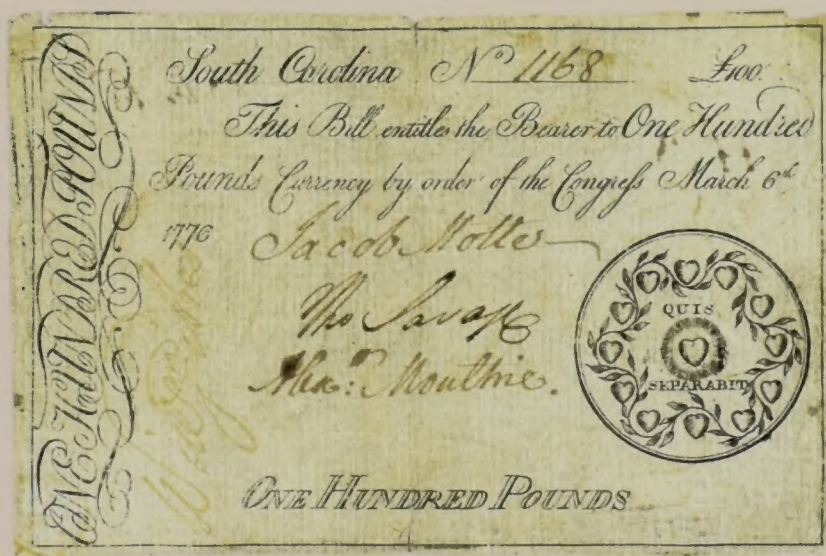 ONE HUNDRED POUNDS
South Carolina Nº 1168 £100.
This Bill entitles the Bearer to One Hundred
Pounds Currency by order of the Congreſs March 6th
1776
Jacob Motte
Tho Savage
Alexr: Moultrie.
QUIS
SEPARABIT
ONE HUNDRED POUNDS